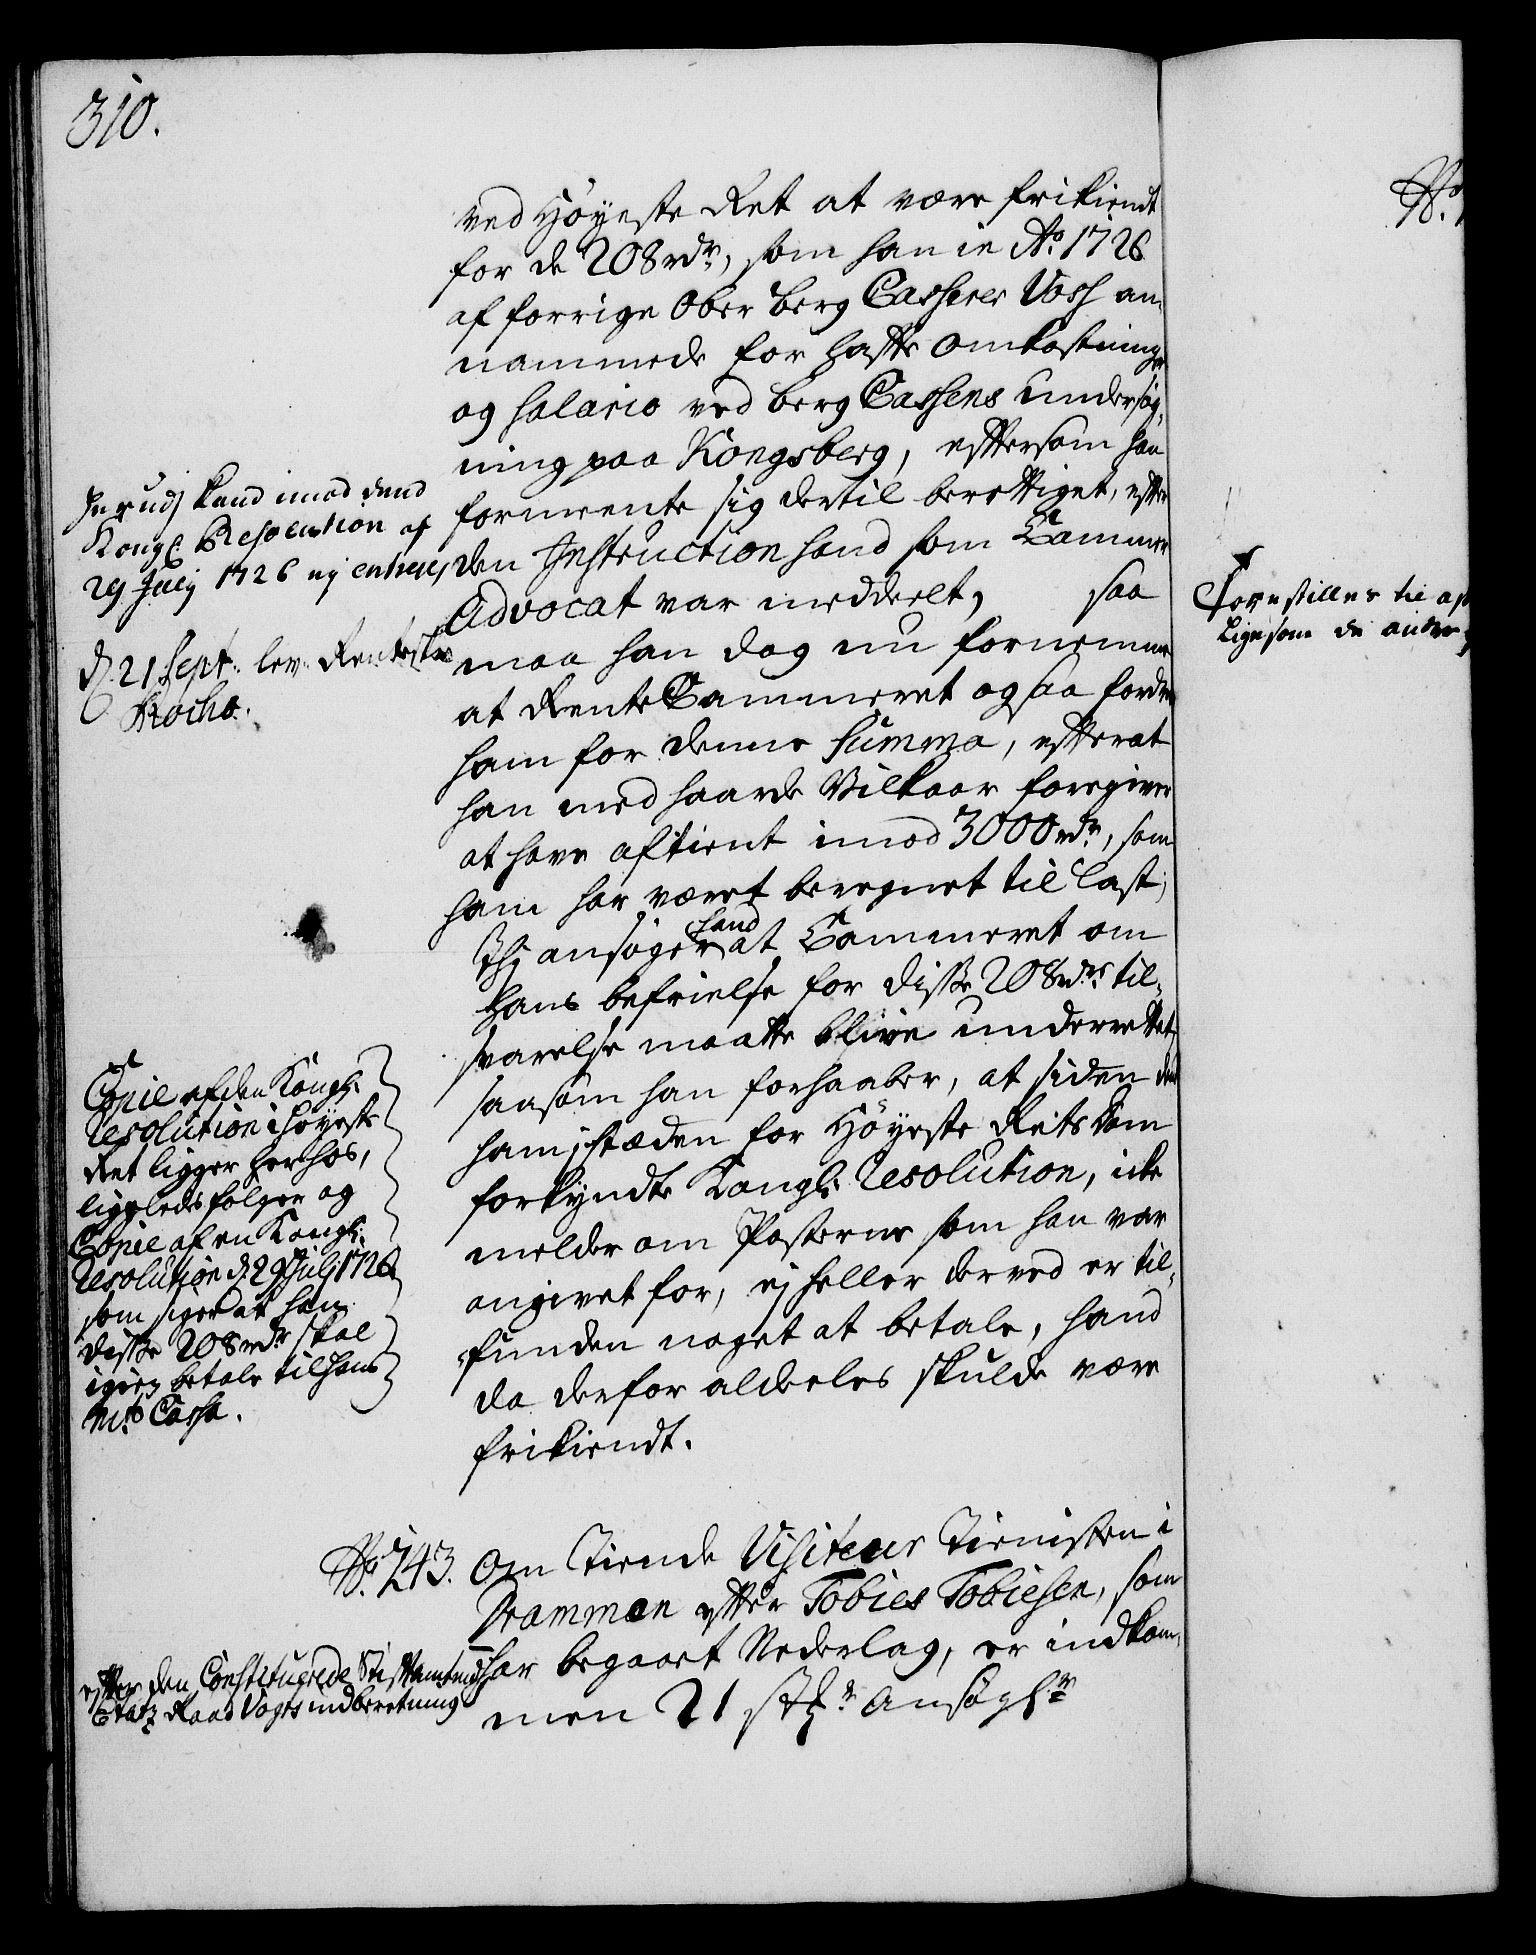 310.
ved Höyeste Ret at være frikiendt
for de 208 rdr, som han in Ao. 1726
af forrige Ober Berg Casserer Vosh an-
nammede for hafte Omkostninger
og Salario ved Berg Cassens undersög-
ning paa Kongsberg, eftersom han
formeente sig dertil berettiget, efter
den Instruction hand som Cammer
Advocat var meddeelt, saa
maa han dog nu fornemme
at Rente Cammeret ogsaa fordrer
ham for denne Summa, efterat
han med haarde Vilkaar foregiver
at have aftient imod 3000 rdr, som
ham har været beregnet til Last,
Thj ansöger hand at Cammeret om
hans befrielse for disse 208 rdrs til-
svarelse maatte blive underrettet,
saasom han forhaaber, at siden den
ham i stæden for Höyeste Rets Dom
forkyndte Kongl: Resolution, icke
melder om Posterne som han var
angivet for, ej heller derved er til-
funden noget at betale, hand
da derfor aldeeles skulde være
frikiendt.
kand imod dend
Kongl: Resolution af
29 Julij 1726 ej
d. 21 Sept. lev. Rentes
Copie af den Kongl:
Resolution i Höyeste
Ret ligger herhos,
ligeleds fölger og
Copie af en Kongl:
Resolution d. 29 Julij 1726
som siger at han
disse 208 rdr skal
igien betale til Hans
Mts Cassa.
No. 243. Om Tiende Visiteur Tienisten i
Drammen efter Tobies Tobiesen, som
har begaaet Nederlag, er indkom-
men 21 stkr Ansögsr
efter den Constituerede Stiftamtmd
Etatz Raad Vogts indberetning
No.
Forestilles til
ligesom de andre